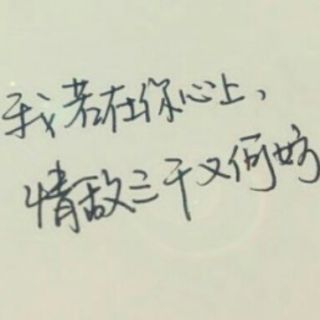 我若在你心上，
情敌三千又何妨